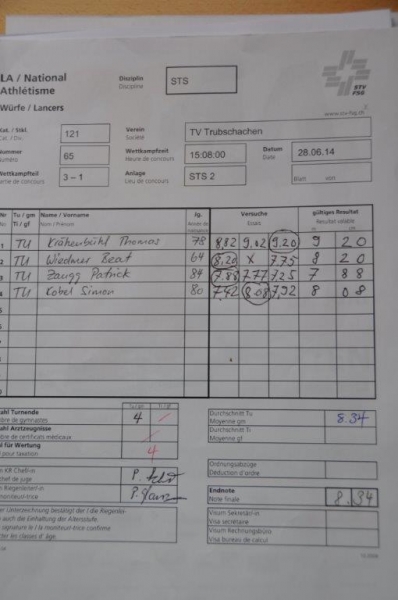 LA / National
Athlétisme
Würfe / Lancers
Disziplin
Discipline
STS
STV
FSG
www.stv-fsg.ch
121
Verein
Société
TV Trubschachen
65
Wettkampfzeit
Heure de concours
15:08:00
Datum
Date
28.06.14
Wettkampfteil
3 – 1
Anlage
Lieu de concours
STS 2
Blatt von
Nr Tu / gm Name / Vorname Jg. Versuche gültiges Resultat
No Ti / gf Nom / Prénom Essais Résultat valable
1 TU Krähenbühl Thomas 78 8,82 9,02 9,20 9 20
2 TU Wiedmer Beat 64 8,20 x 7.75 8 20
3 TU Zaugg Patrick 84 7.88 7.77 7.25 7 88
4 TU Kobel Simon 80 7.42 8.08 7.92 8 08
Turnende
4
Arztzeugnisse
de certificats médicaux
für Wertung
pour taxation
4
Durchschnitt Tu
Moyenne gm
8.34
Durchschnitt Ti
Moyenne gf
Ordnungsabzüge
Déduction d'ordre
Endnote
Note finale
8.34
KR Chef/-in
chef de juge
Riegenleiter/-in
moniteur/-trice
Visum Sekretär/-in
Visa secrétaire
Visum Rechnungsbüro
Visa bureau de calcul
Unterzeichnung bestätigt der / die Riegenlei-
auch die Einhaltung der Altersstufe.
signature le / la moniteur/-trice confirme
les classes d' âge.